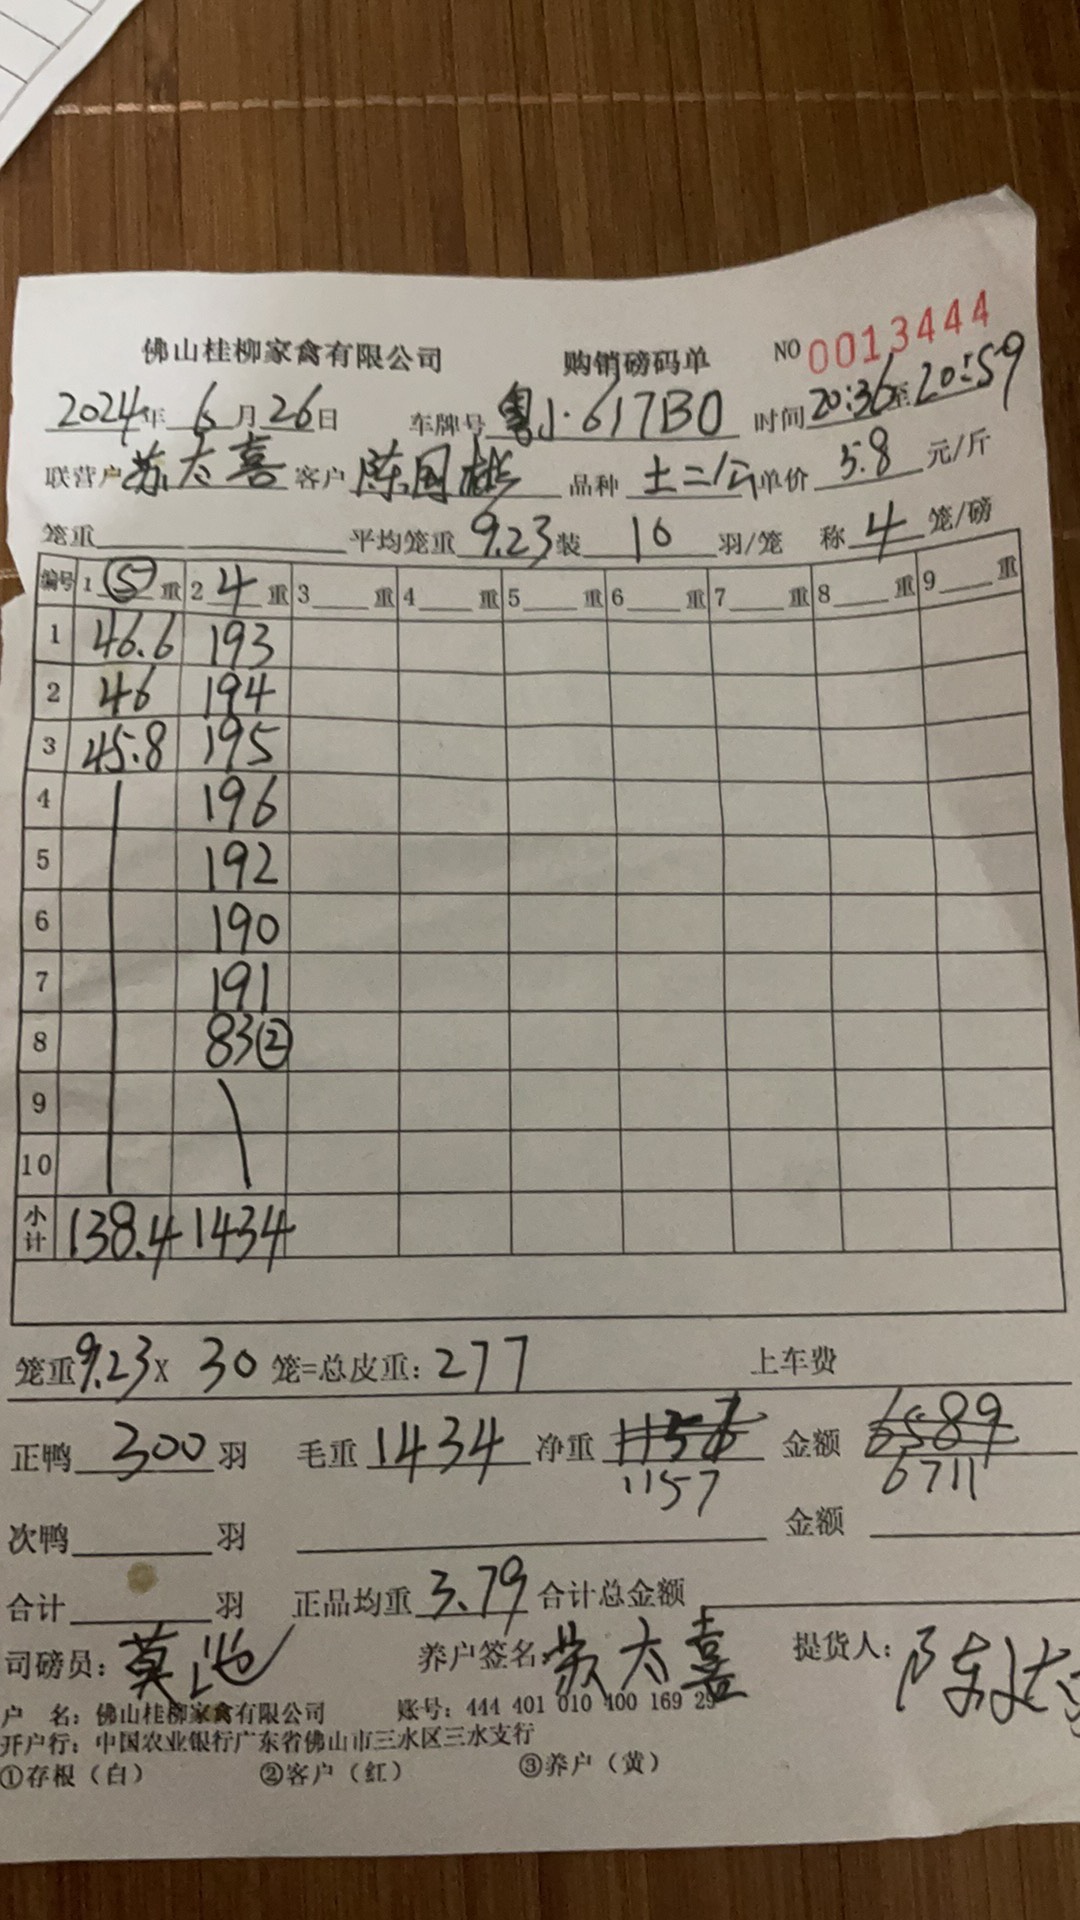 佛山桂柳家禽有限公司 购销磅码单 NO 0013444
2024年 6月26日 车牌号 粤J·617B0 时间20:36至20:59
联营户 苏太喜 客户 陈国 品种 土二公 单价 5.8 元/斤
笼重 平均笼重 9.23 装 10 羽/笼 称 4 笼/磅
编号 1 ⑤ 重 2 4 重 3 重 4 重 5 重 6 重 7 重 8 重 9 重
1 46.6 193
2 46 194
3 45.8 195
4 196
5 192
6 190
7 191
8 83②
9
10
小计 138.4 1434
笼重9.23X 30 笼=总皮重: 277 上车费
正鸭 300 羽 毛重 1434 净重 金额 6589
1157 6711
次鸭 羽 金额
合计 羽 正品均重 3.79 合计总金额
司磅员: 莫 养户签名: 苏太喜 提货人: 陈
户 名: 佛山桂柳家禽有限公司 账号: 444 401 010 400 169 29
开户行: 中国农业银行广东省佛山市三水区三水支行
①存根（白） ②客户（红） ③养户（黄）